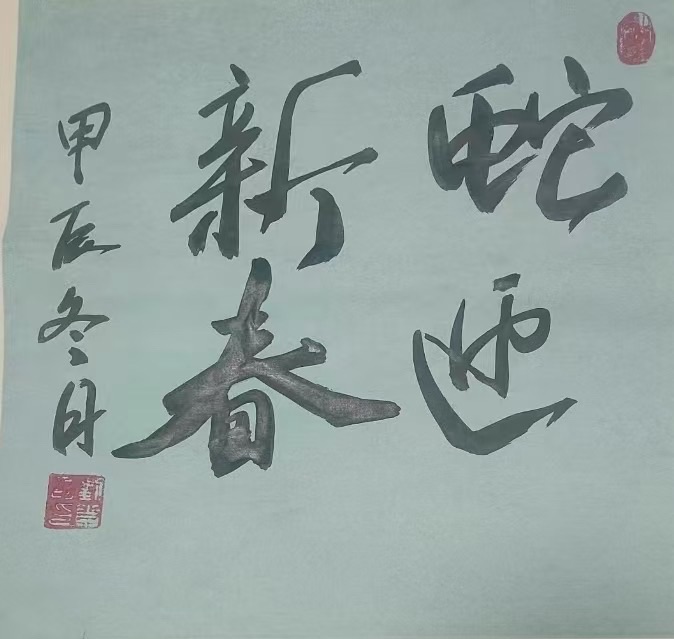 蛇迎
新春
甲辰冬月